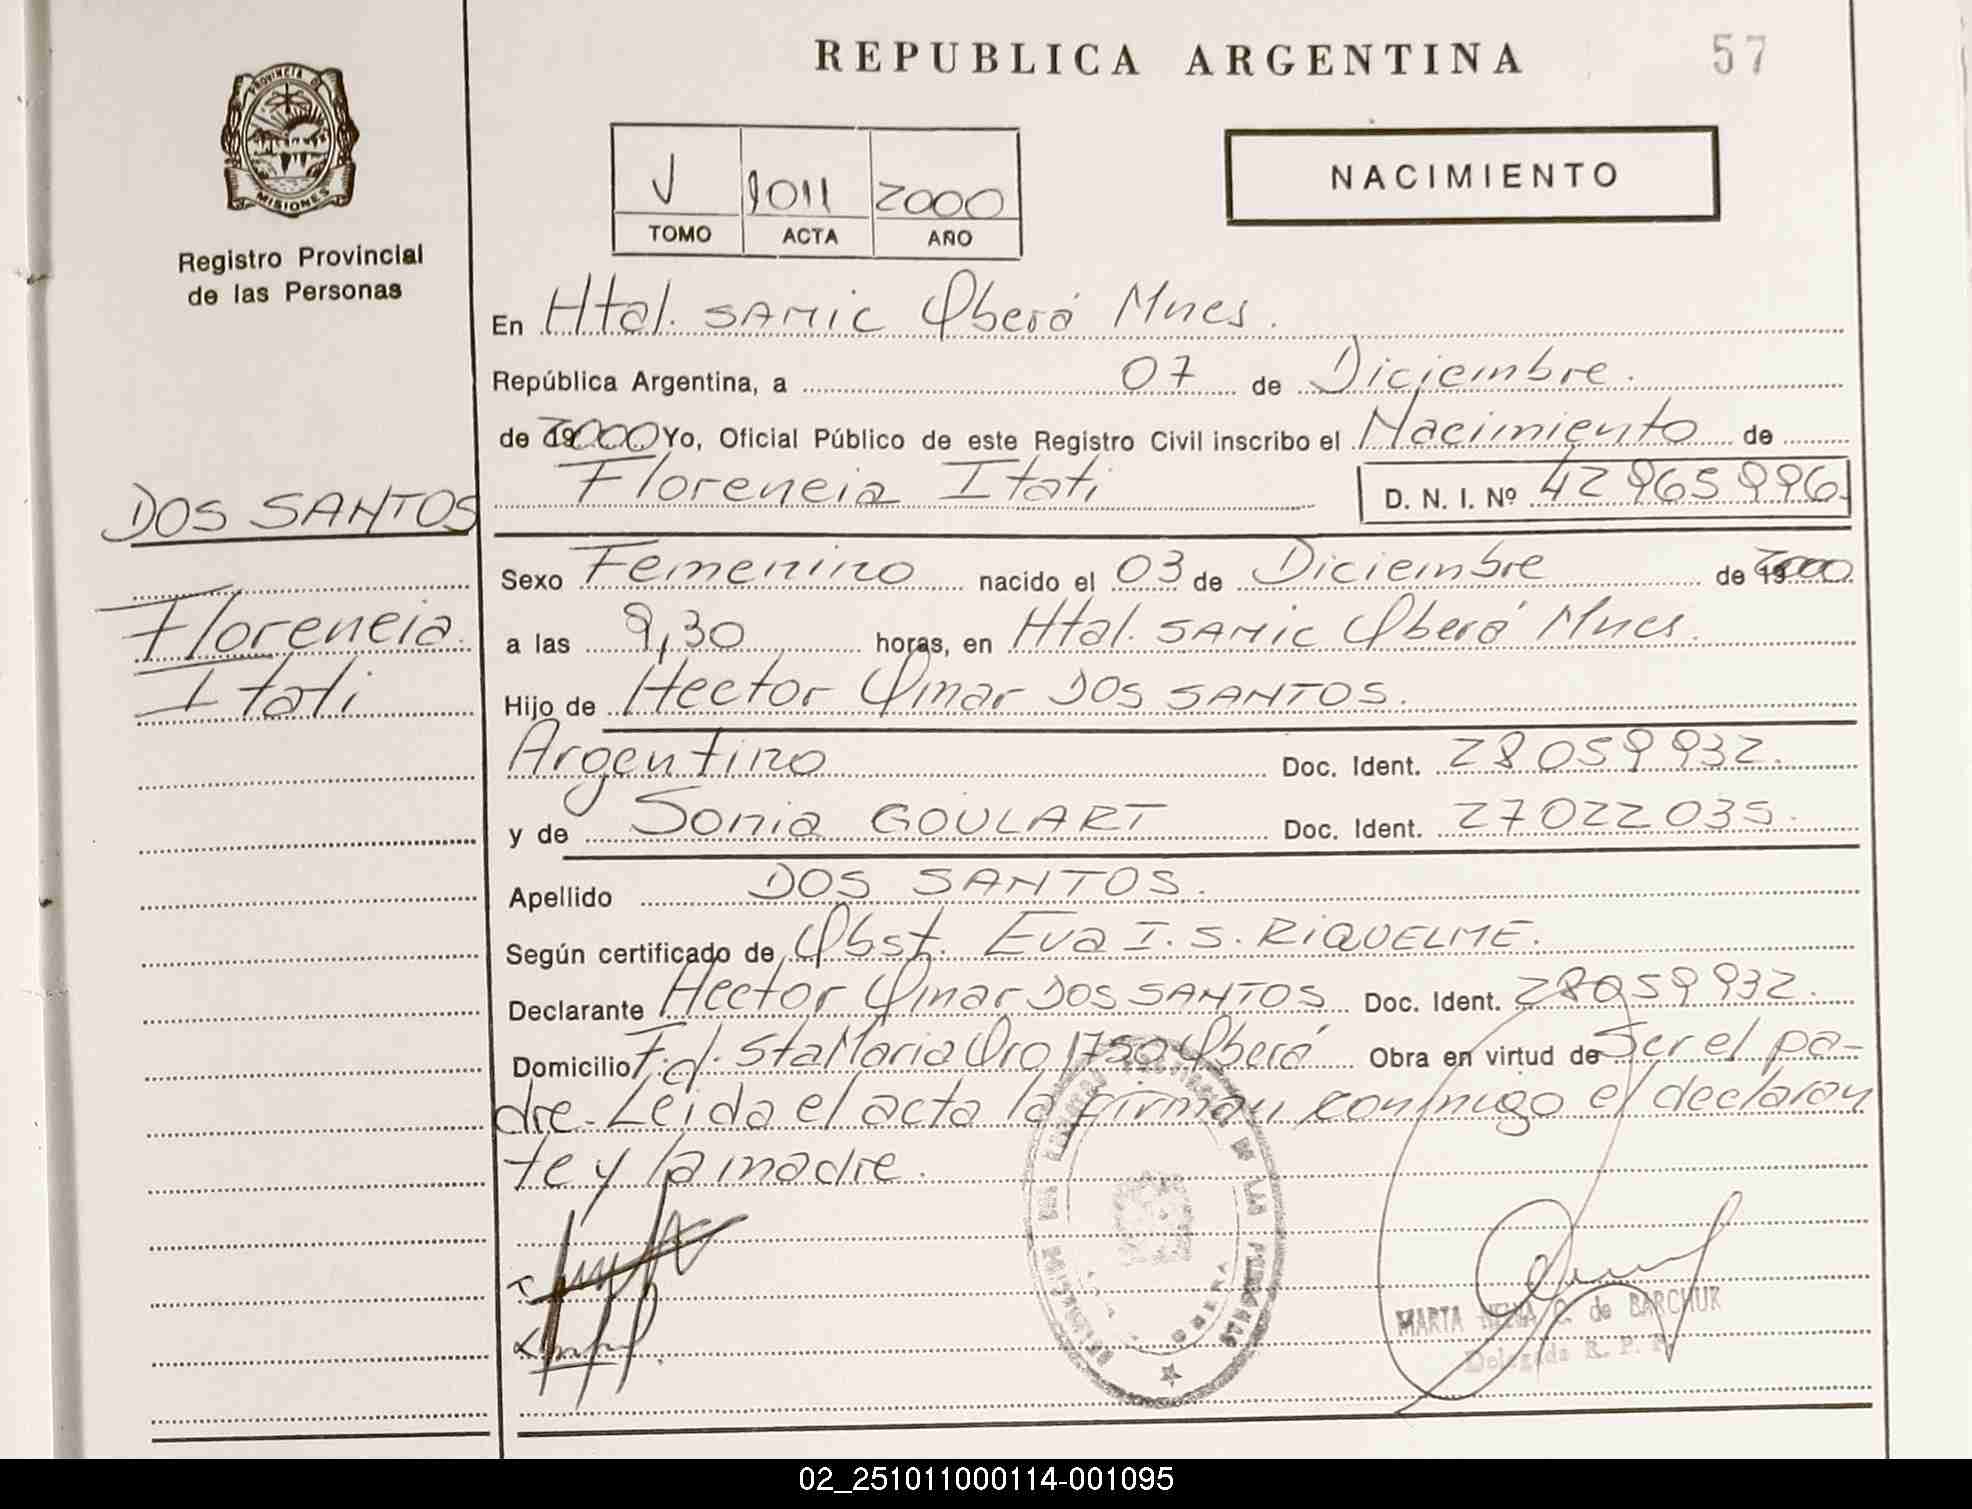 REPUBLICA ARGENTINA
57
PROVINCIA DE
MISIONES
Registro Provincial
de las Personas
V 1011 2000
TOMO ACTA AÑO
NACIMIENTO
En Htal. SAMIC Oberá Mnes.
República Argentina, a 07 de Diciembre.
de 2000 Yo, Oficial Público de este Registro Civil inscribo el Nacimiento de
Florencia Itati D. N. I. Nº 42965996
DOS SANTOS
Florencia
Itati
Sexo Femenino nacido el 03 de Diciembre de 2000
a las 9,30 horas, en Htal. SAMIC Oberá Mnes.
Hijo de Hector Omar DOS SANTOS.
Argentino Doc. Ident. 28059932.
y de Sonia GOULART Doc. Ident. 27022035.
Apellido DOS SANTOS.
Según certificado de Obst. Eva I. S. RIQUELME.
Declarante Hector Omar DOS SANTOS Doc. Ident. 28059932.
Domicilio F.d. Sta Maria Oro 1750 Oberá Obra en virtud de Ser el pa-
dre. Leida el acta la firman conmigo el declaran
te y la madre.
MARTA C. de BARCHUK
Delegada R. P. P.
OBERA
02_251011000114-001095